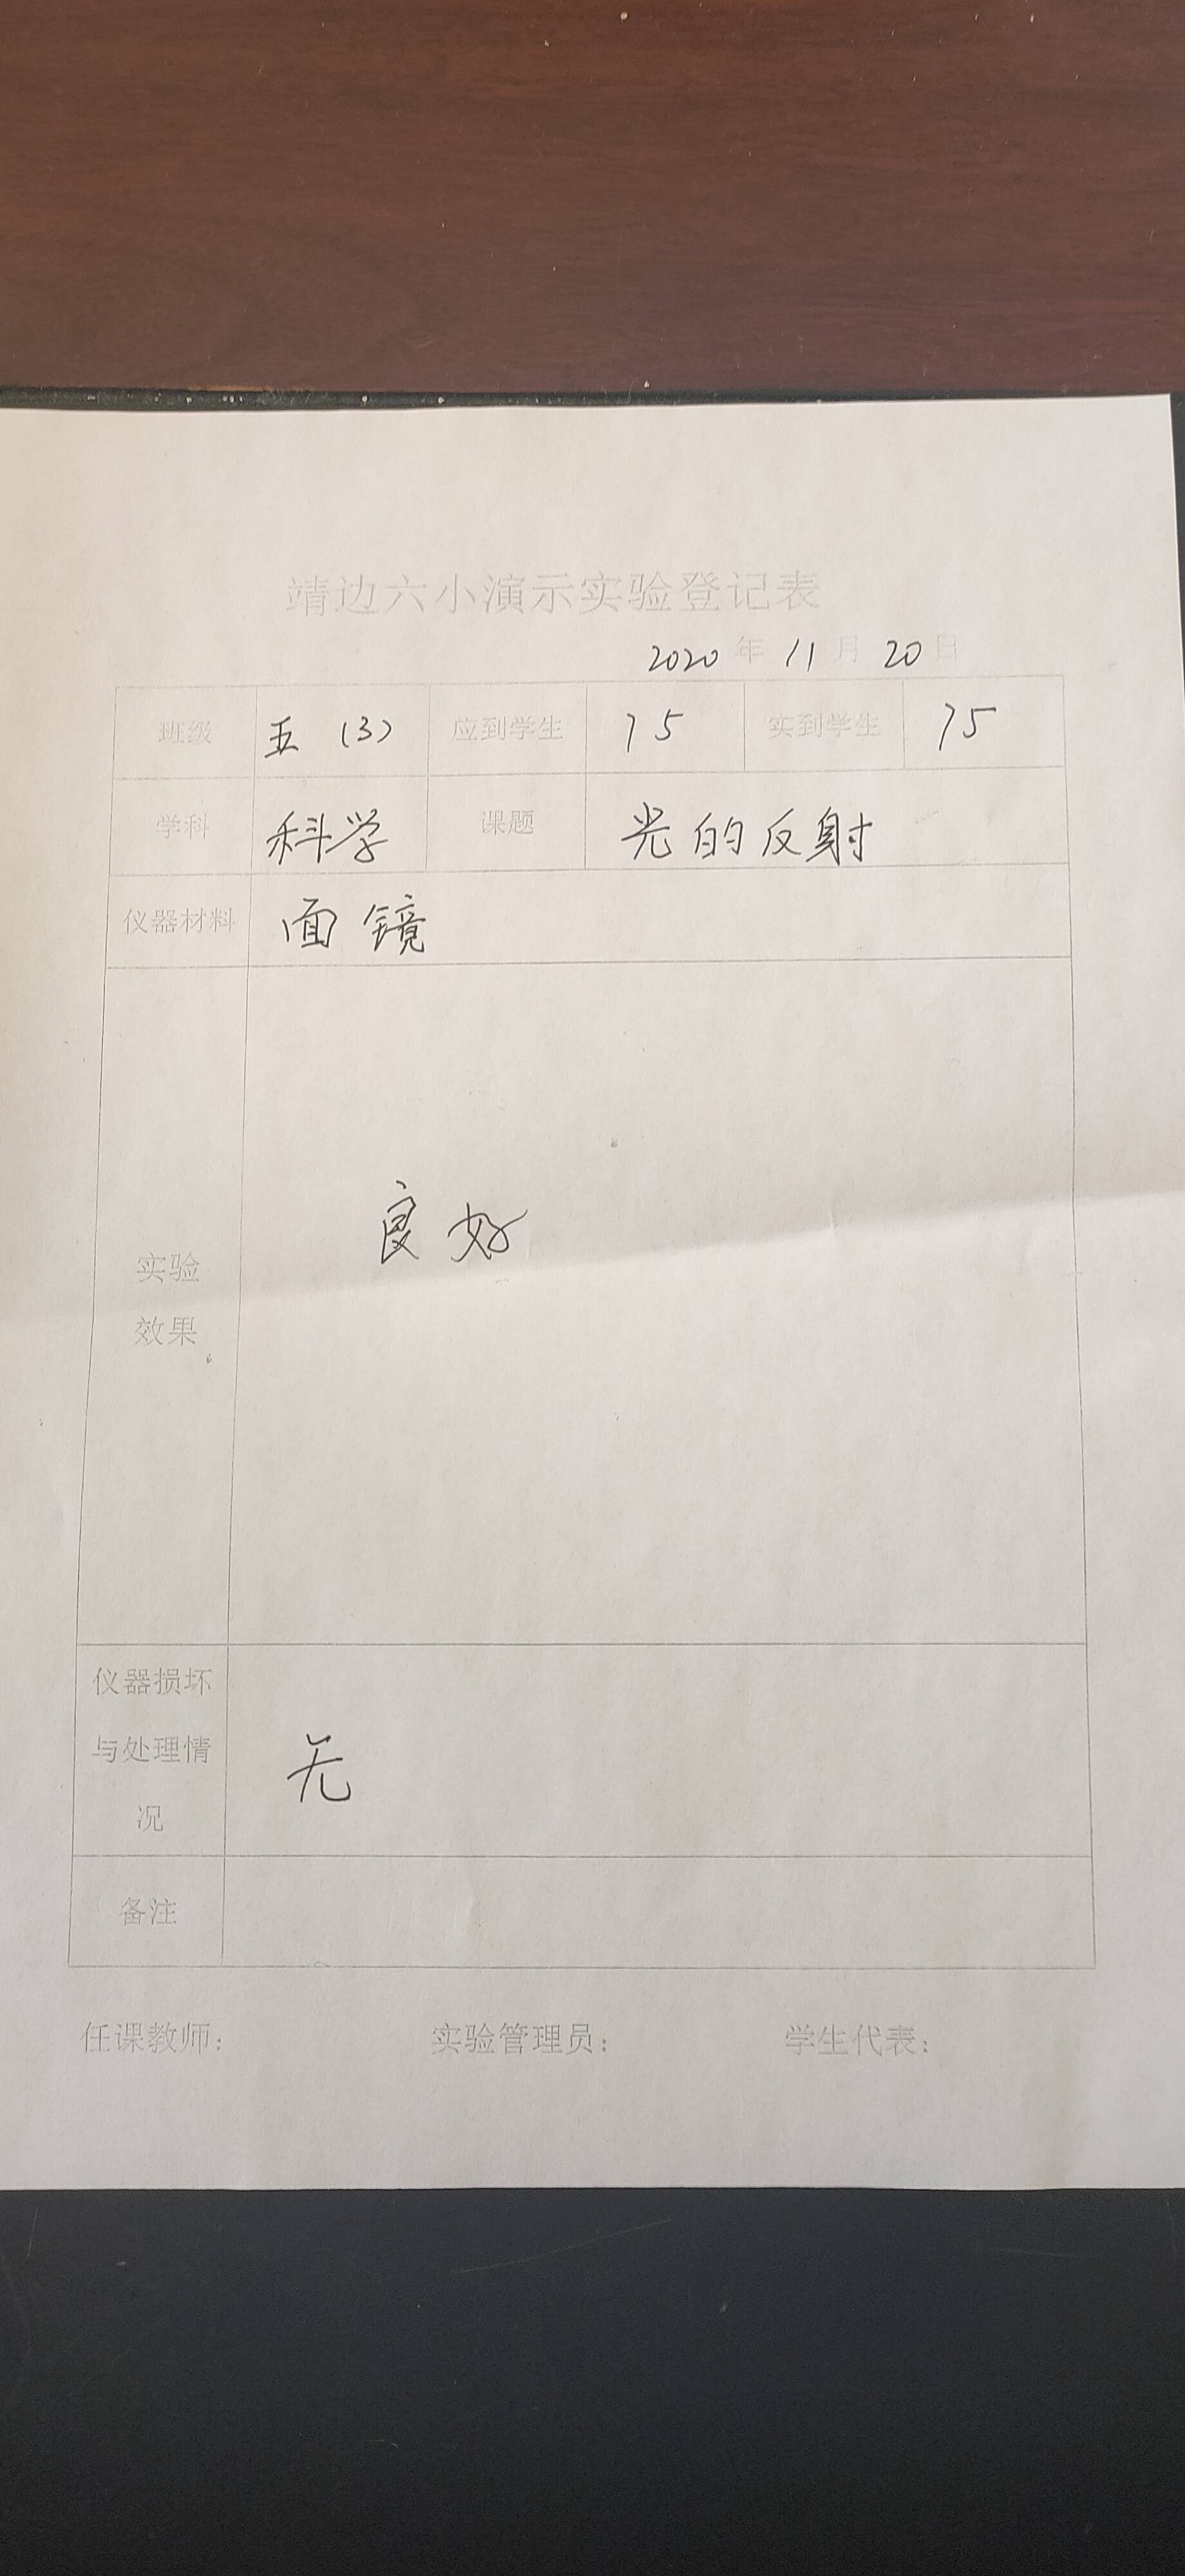 靖边六小演示实验登记表
2020年11月20日
班级 五(3) 应到学生 75 实到学生 75
学科 科学 课题 光的反射
仪器材料 面镜
实验
效果
良好
仪器损坏
与处理情
况
无
备注
任课教师: 实验管理员: 学生代表: